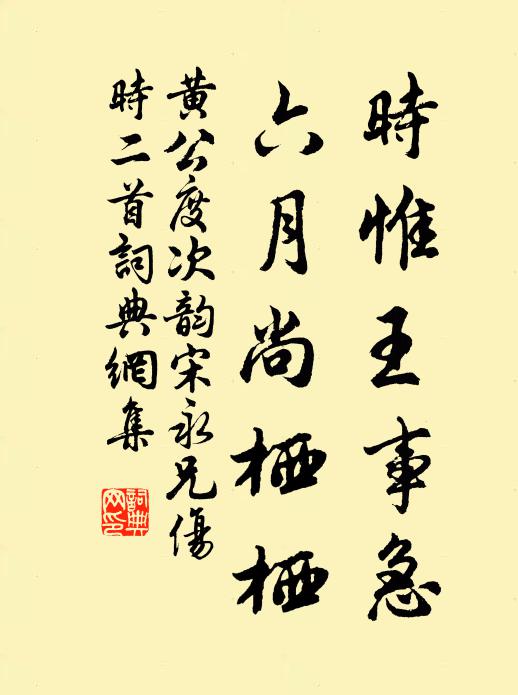 時惟王事急
六月尚栖栖
黄公度次韵宋永兄傷
時二首詞典網集
詞典
网印